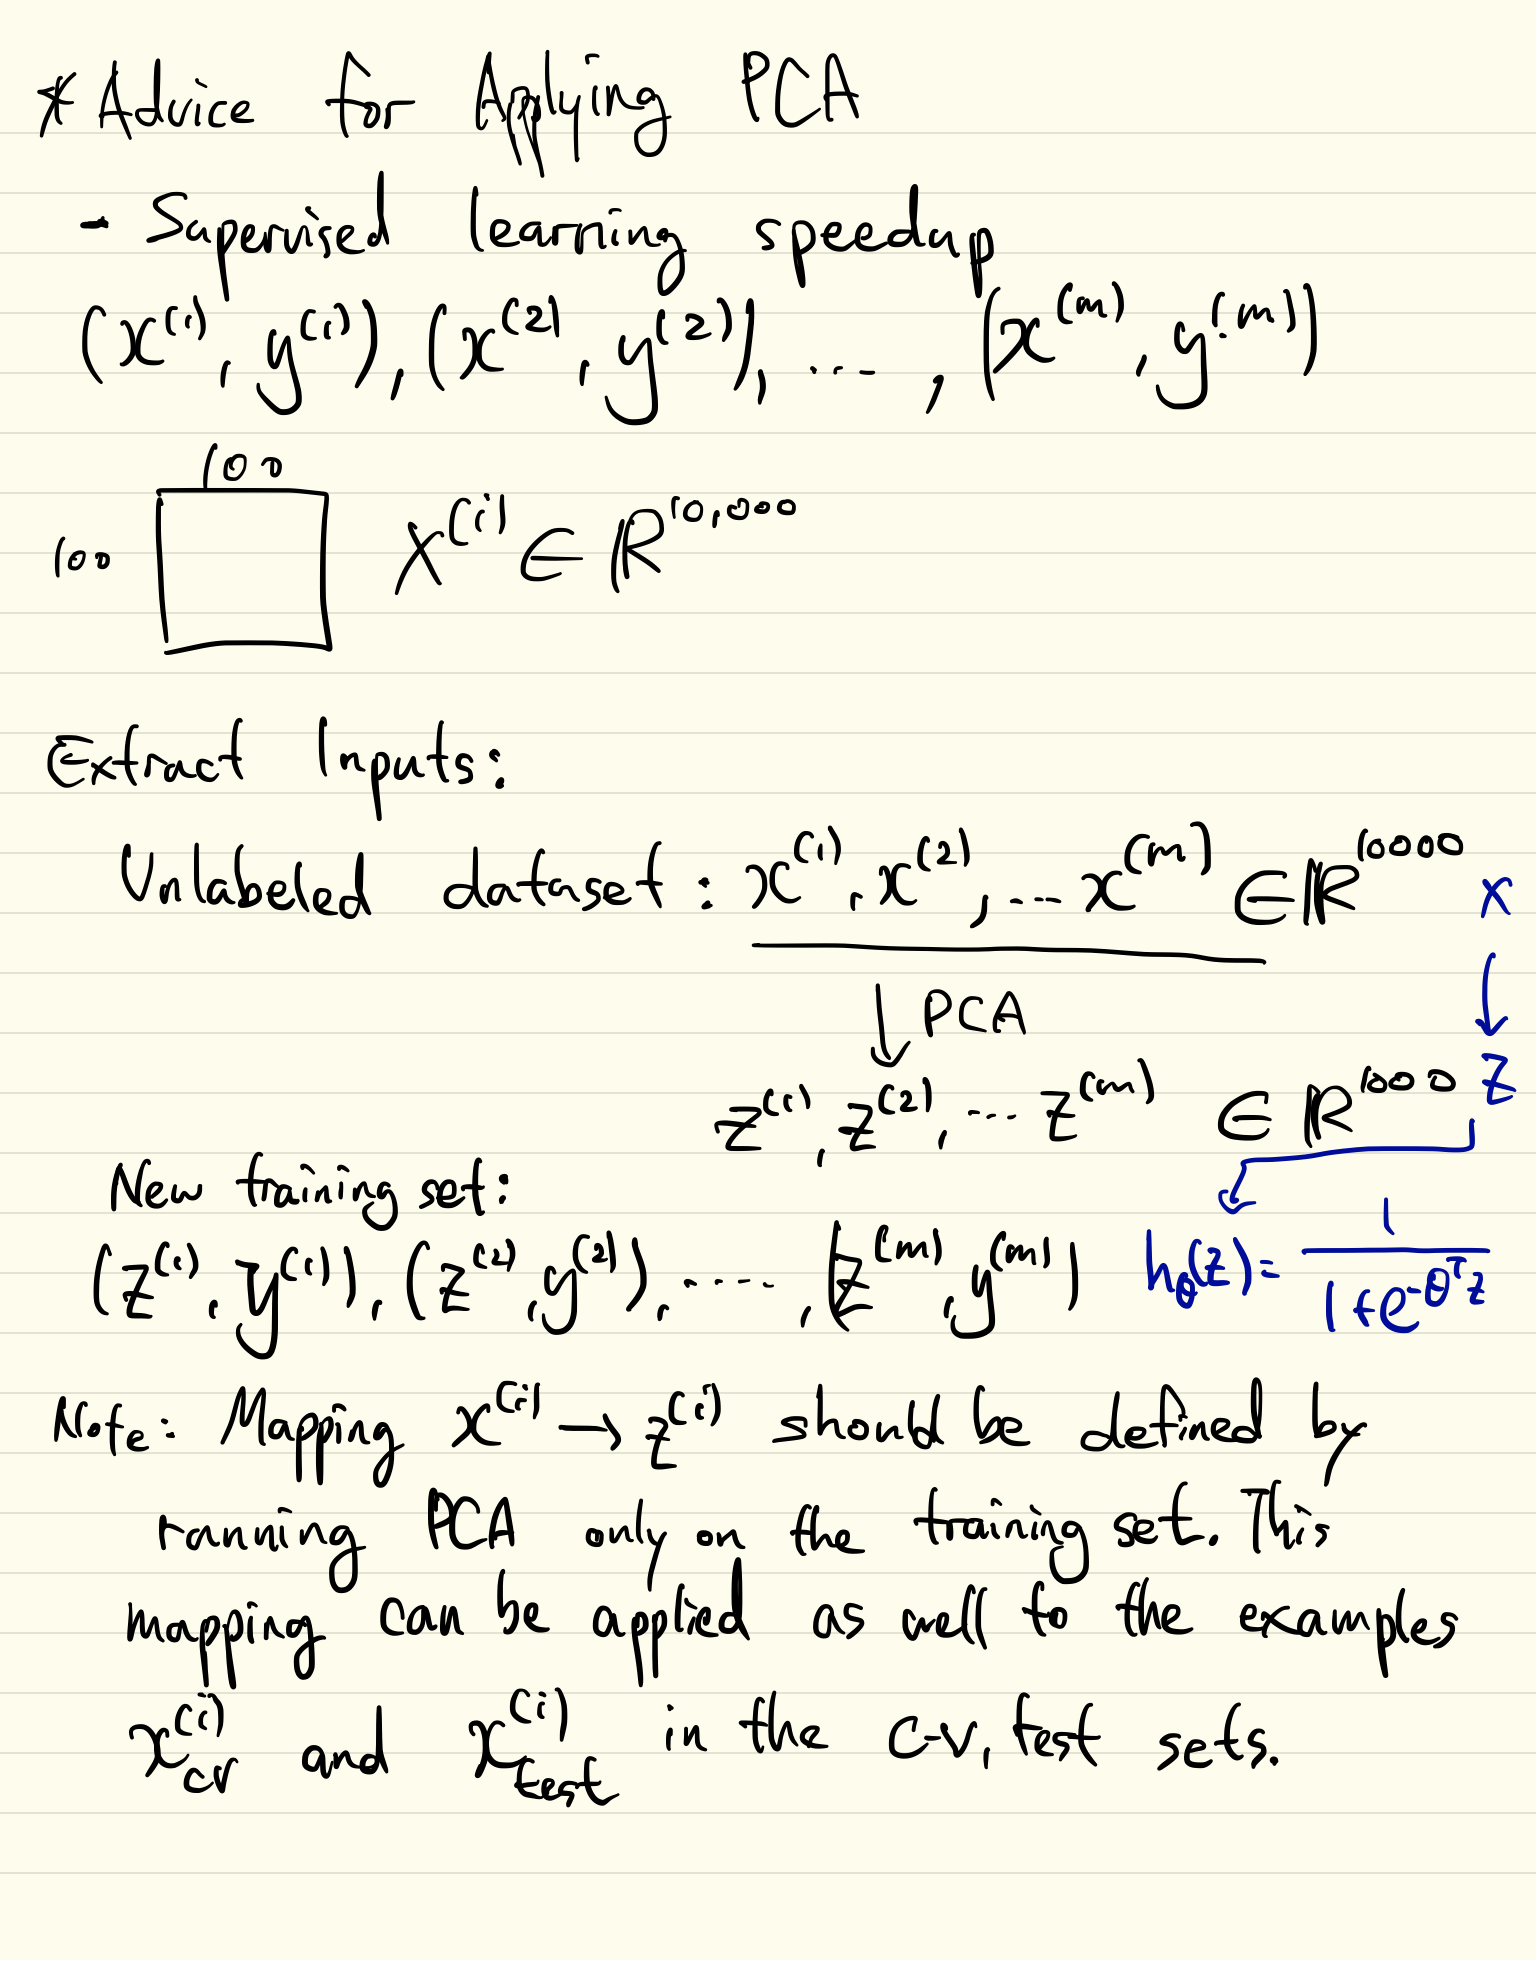 * Advice for Applying PCA
- Supervised learning speedup
(x^(1), y^(1)), (x^(2), y^(2)), ..., (x^(m), y^(m))
100
100 x^(i) ∈ ℝ^10,000
Extract Inputs:
Unlabeled dataset: x^(1), x^(2), ... x^(m) ∈ ℝ^10000 x
↓ PCA ↓
z^(1), z^(2), ... z^(m) ∈ ℝ^1000 z
New training set:
(z^(1), y^(1)), (z^(2), y^(2)), ....., (z^(m), y^(m)) h_θ(z) = 1 / (1+e^(-θ^T z))
Note: Mapping x^(i) → z^(i) should be defined by
running PCA only on the training set. This
mapping can be applied as well to the examples
x_cv^(i) and x_test^(i) in the c-v, test sets.